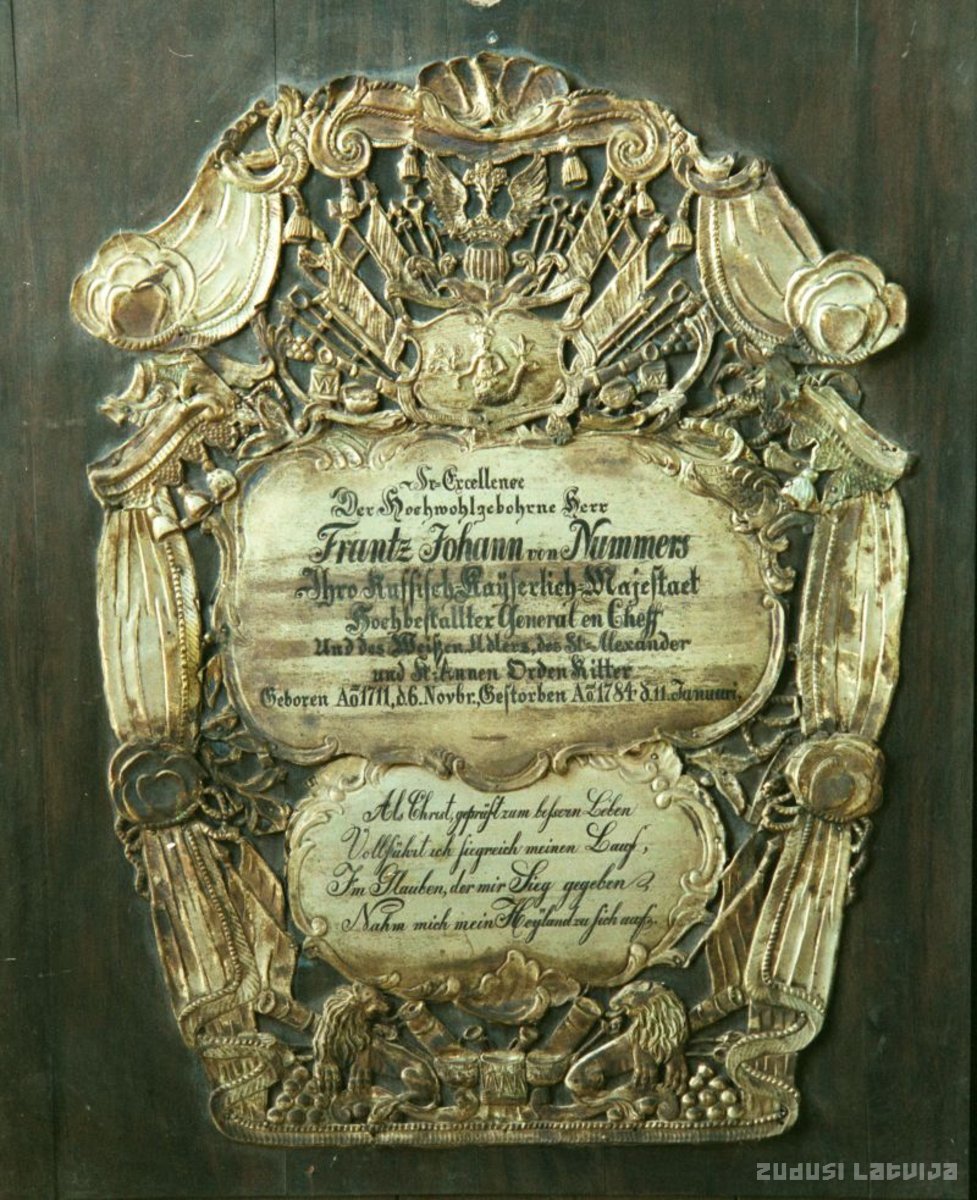 Sr. Excellence
Der Hochwohlgebohrne Herr
Frantz Johann von Nummers
Ihro Russisch-Kaÿserlich-Majestaet
Hochbestallter General en Cheff
Und des Weißen Adlers, des St. Alexander
und St. Annen Orden Ritter
Geboren Aõ 1711, d. 6. Novbr., Gestorben Aõ 1784. d. 11. Januari,
Als Christ, geprüft zum bessern Leben
Vollführt ich siegreich meinen Lauf,
Im Glauben, der mir Sieg gegeben
Nahm mich mein Heÿland zu sich auf.
ZUDUSI LATVIJA